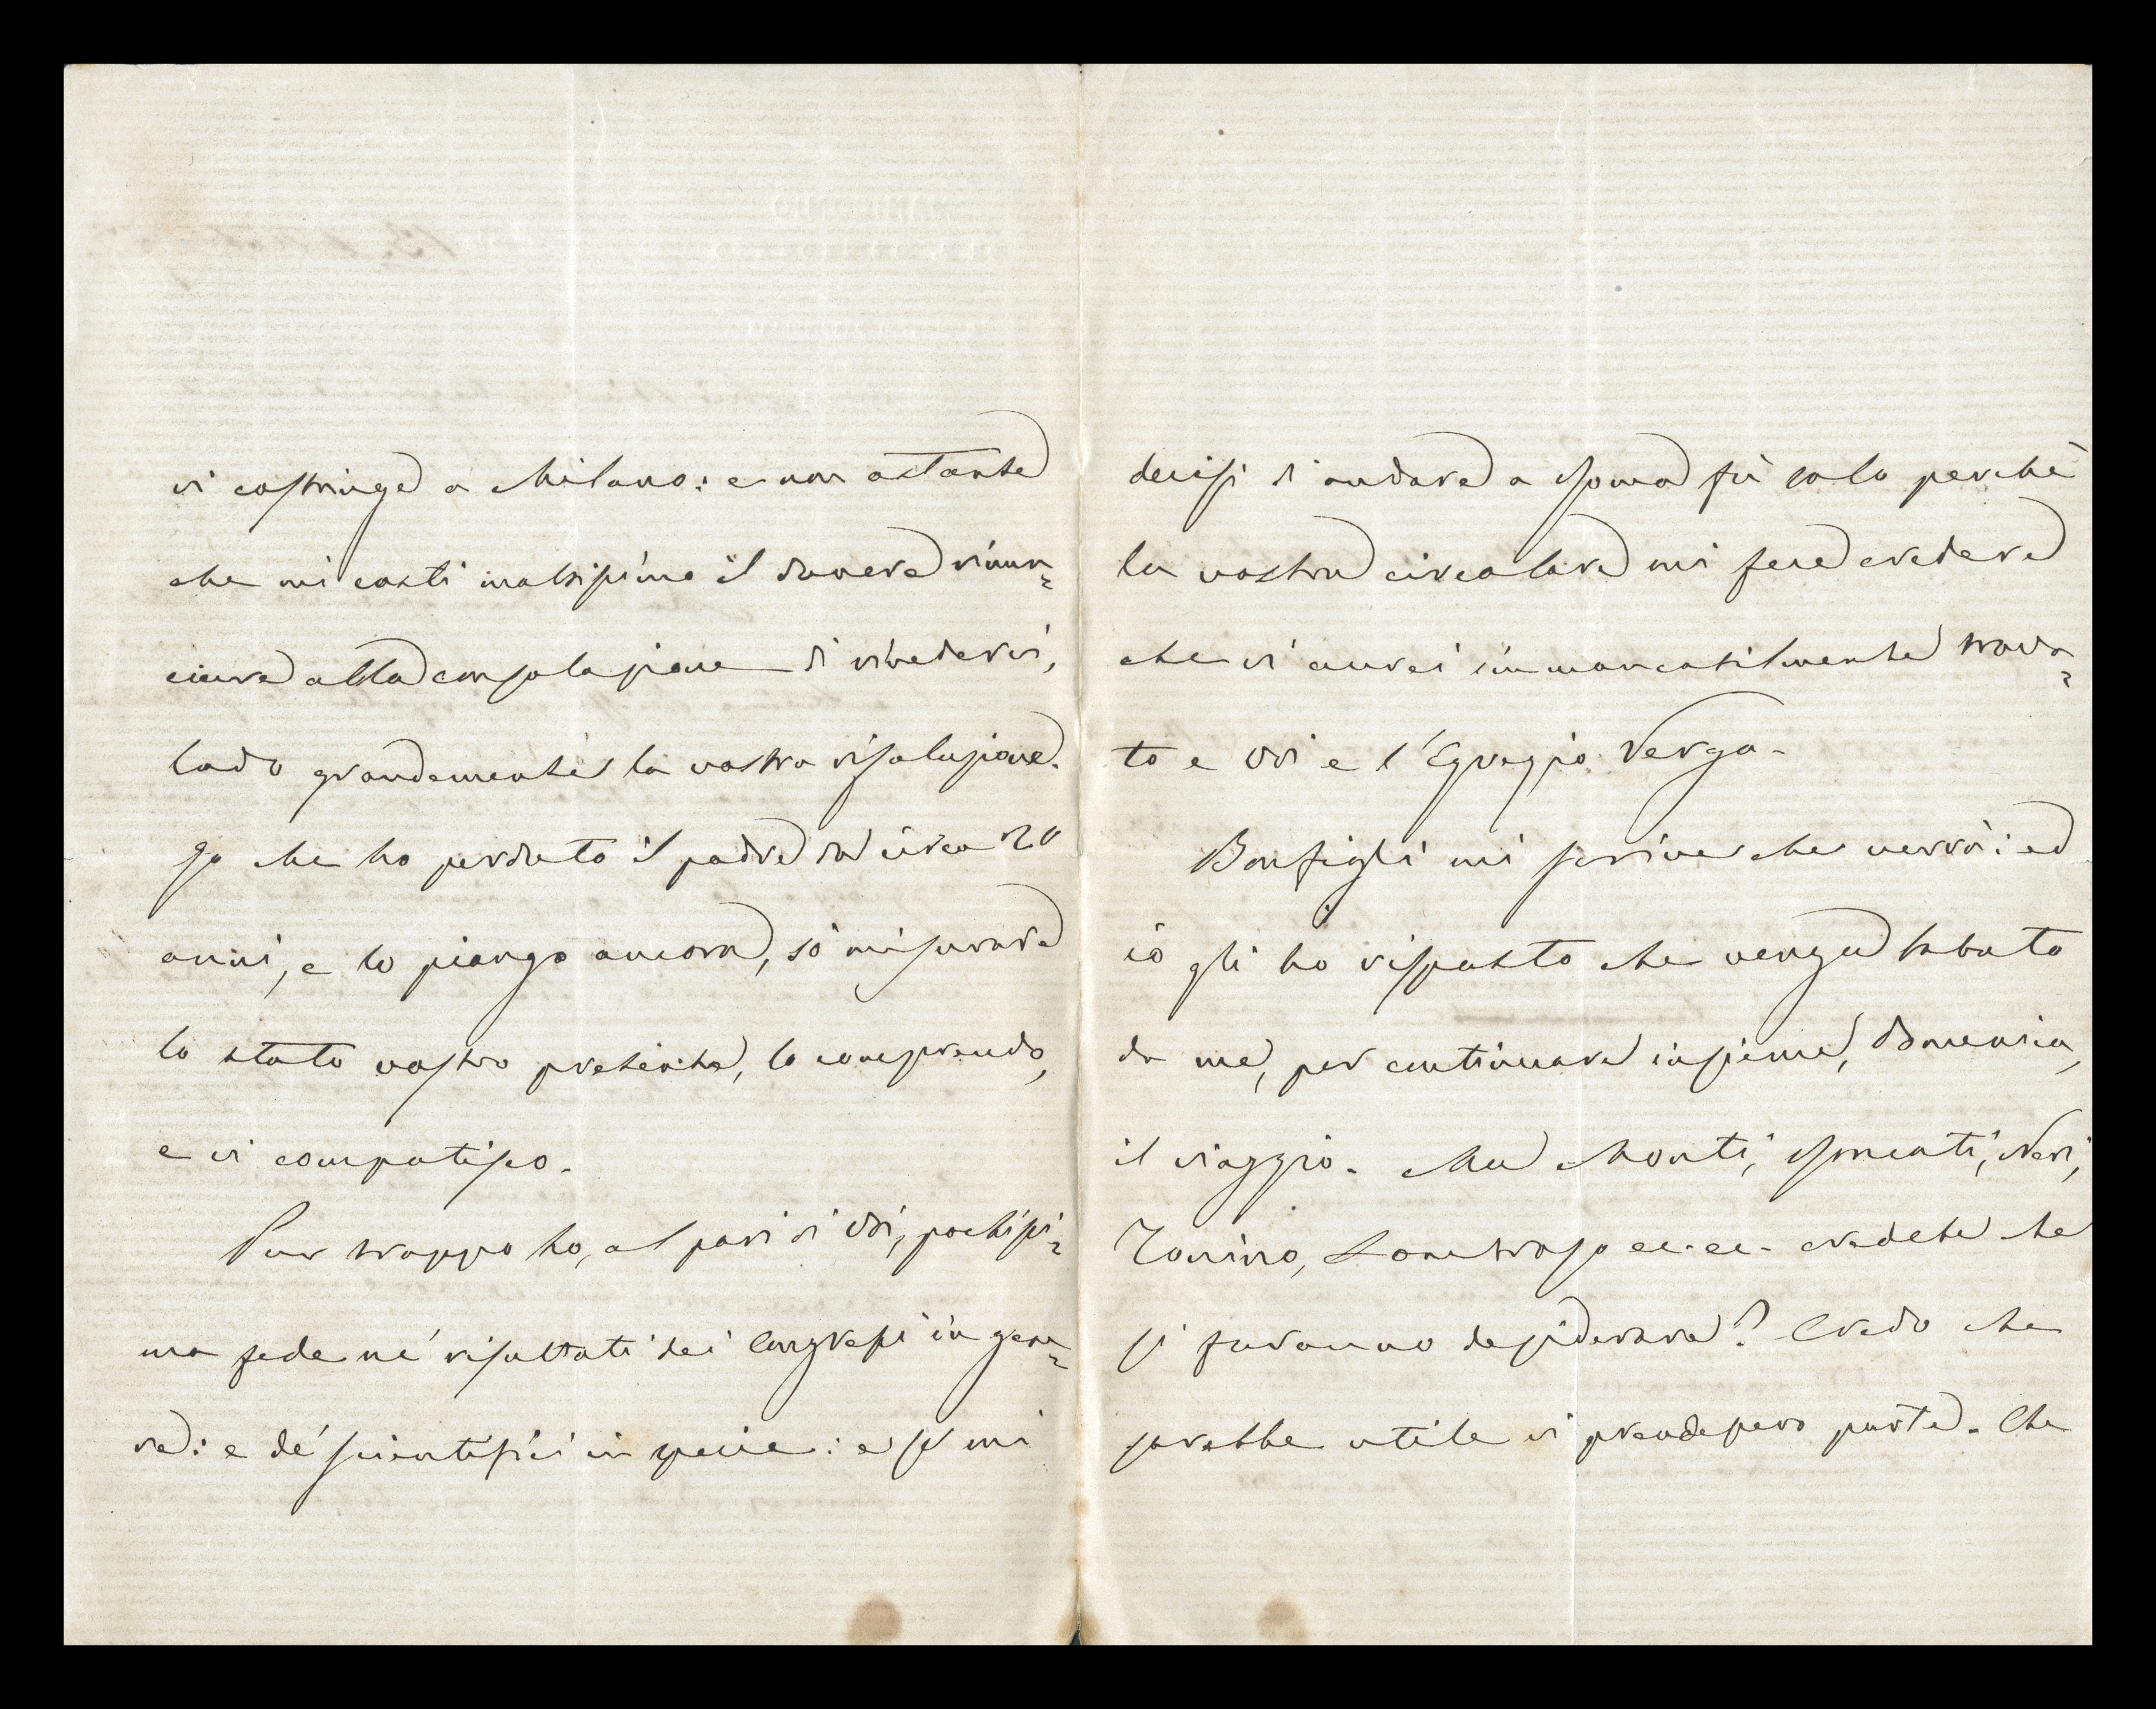 vi costringe a Milano: e non ostante
che mi costi moltissimo il dovere rinun=
ciare alla consolazione di rivedervi,
lodo grandemente la vostra risoluzione.
Io che ho perduto il padre da circa 20
anni, e lo piango ancora, so misurare
lo stato vostro presente, lo comprendo,
e vi compatisco.
Pur troppo ho, al pari di Voi, pochissi=
ma fede né risultati dei Congressi in gene=
re: e dé scientifici in specie: e se mi
decisi di andare a Roma fù solo perchè
la vostra circolare mi fece credere
che vi avrei immancabilmente trova=
to e Voi e l'Egregio Verga.
Bonfigli mi scrive che verrà: ed
io gli ho risposto che venga sabato
da me, per continuare insieme, Domenica,
il viaggio. Ma Monti, Neri,
Tonino, Lombroso ec. ec. credete che
si faranno desiderare? Credo che
sarebbe utile vi prendessero parte. Che